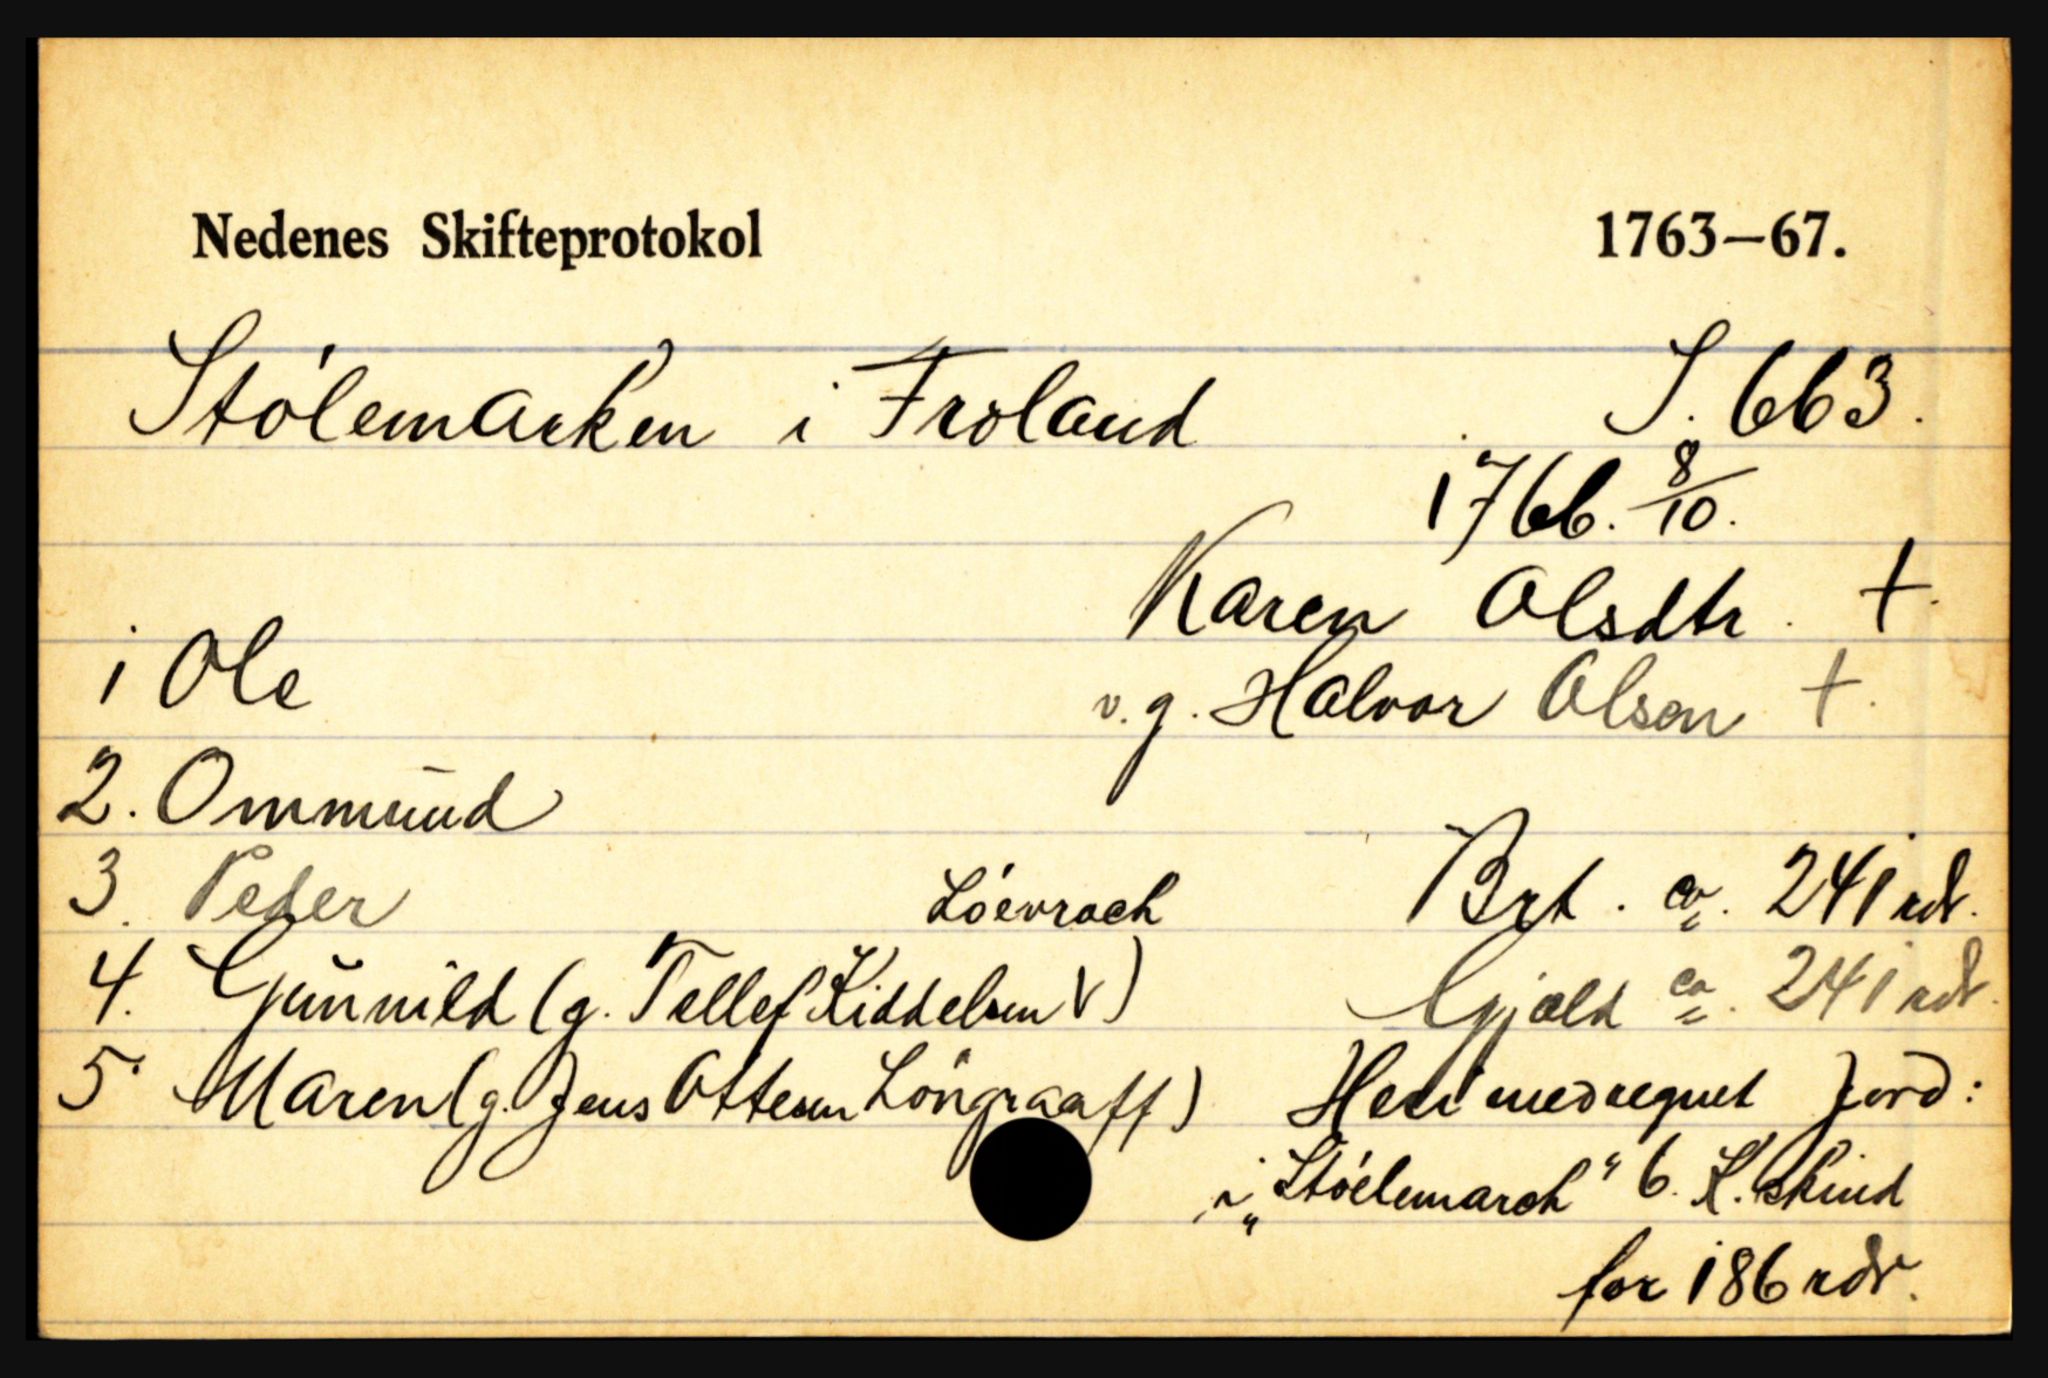 Nedenes Skifteprotokol 1763—67.
Stólemarken i Froland S. 663.
1766. 8/10.
Karen Olsdtr. †.
1 Ole v.g. Halvor Olsen †.
2. Ommund
3. Peder Brt. ca. 241 rdr.
Lóevrach
4. Gunnild (g. Tellef Kiddelsen V) Gjæld ca. 241 rdr.
5. Maren (g. Jens Ottesen Löngraaff) Heri medregnet Jord:
i „Stóelemarch" 6. K. skind
for 186 rdr.